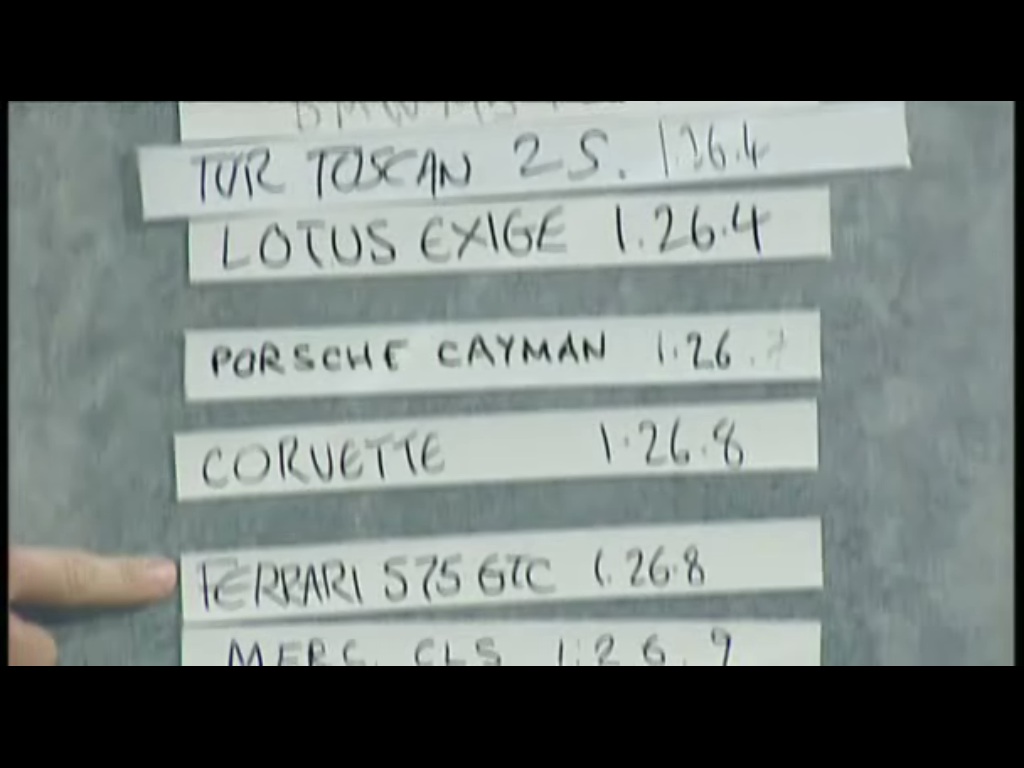 BMW M5
TVR TOSCAN 2 S. 1.26.4
LOTUS EXIGE 1.26.4
PORSCHE CAYMAN 1.26.7
CORVETTE 1.26.8
FERRARI 575 GTC 1.26.8
MERC CLS 1:26.9